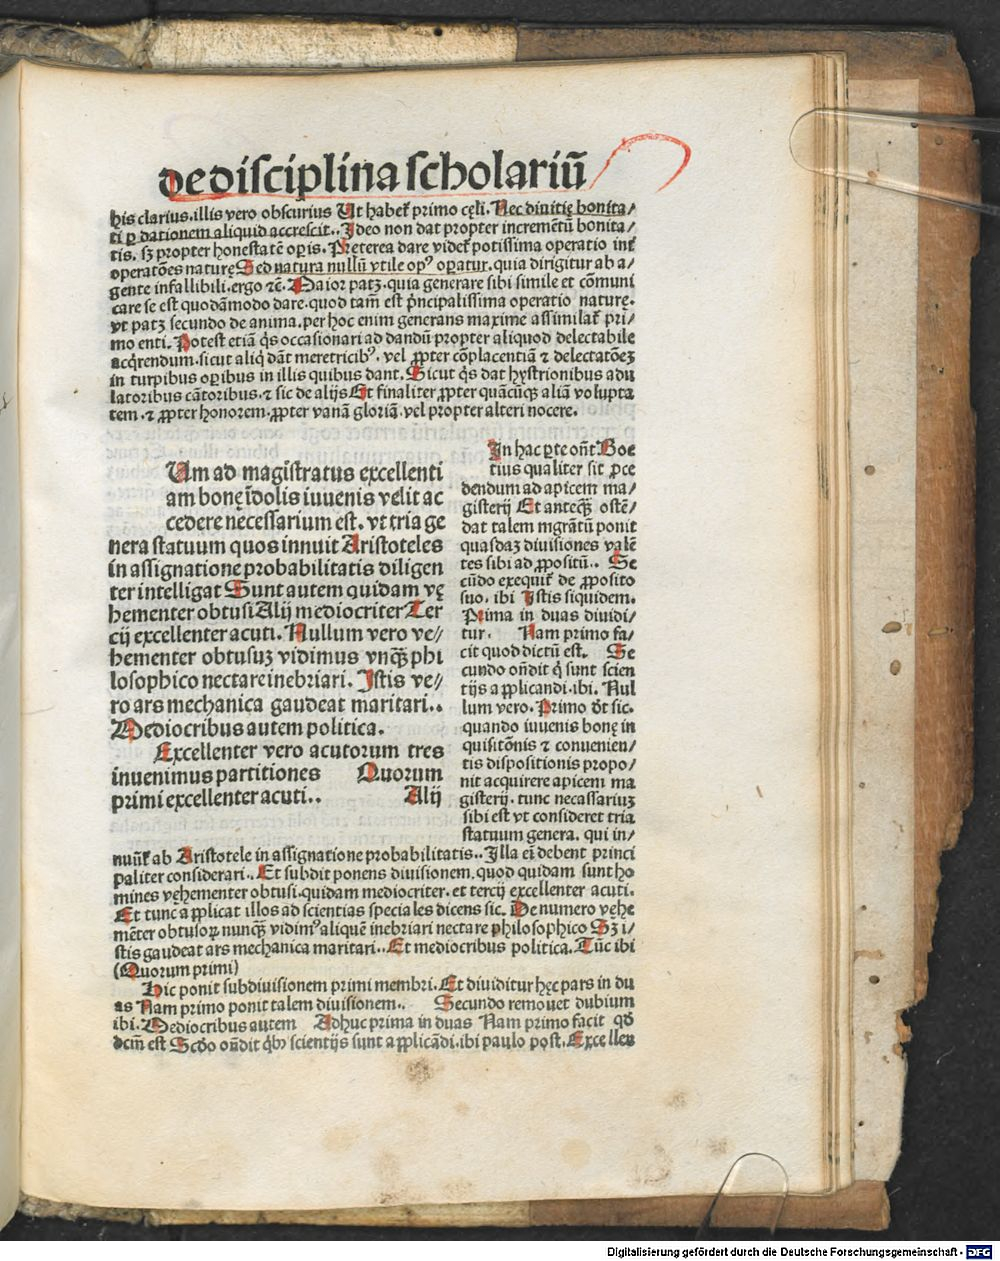 de disciplina scholariū
his clarius.illis vero obscurius Ut habet᷑ primo cęli. Nec diuitię bonita/
ti ꝑ dationem aliquid accrescit.. Ideo non dat propter incremētū bonita/
tis. sꝫ propter honestatē oꝑis. Preterea dare videt᷑ potissima operatio int᷑
operatōes naturę Sed natura nullū vtile opꝰ oꝑatur. quia dirigitur ab a/
gente infallibili.ergo ⁊č. Maior patꝫ. quia generare sibi simile et cōmuni
care se est quodāmodo dare. quod tam̄ est prīncipalissima operatio nature.
vt patꝫ secundo de anima. per hoc enim generans maxime assimilat᷑ pri/
mo enti. Potest etiā qͥs occasionari ad dandū propter aliquod delectabile
acqͥrendum. sicut aliqͥ dāt meretricibꝰ. vel ꝓpter cōplacentiā ⁊ delectatōeꝫ
in turpibus oꝑibus in illis quibus dant. Sicut qͥs dat hystrionibus adu
latoribus cātoribus. ⁊ sic de alijs Et finaliter ꝓpter quācūqꝫ aliā volupta
tem. ⁊ ꝓpter honorem. ꝓpter vanā gloriā. vel propter alteri nocere.
Um ad magistratus excellenti
am bonę īdolis iuuenis velit ac
cedere necessarium est. vt tria ge
nera statuum quos innuit Aristoteles
in assignatione probabilitatis diligen
ter intelligat Sunt autem quidam vę
hementer obtusi Alij mediocriter Ter
cij excellenter acuti. Nullum vero ve//
hementer obtusuꝫ vidimus vnqꝫ phi
losophico nectare inebriari. Istis ve//
ro ars mechanica gaudeat maritari..
Mediocribus autem politica.
Excellenter vero acutorum tres
inuenimus partitiones Quorum
primi excellenter acuti.. Alij
In hac ꝑte oñt Boe
tius qualiter sit ꝓce
dendum ad apicem ma/
gisterij Et anteqꝫ ostē/
dat talem mgrātū ponit
quasdaꝫ diuisiones valē
tes sibi ad ꝓpositū.. Se
cūdo exequit᷑ de ꝓposito
suo. ibi Istis siquidem.
Prima in duas diuidi/
tur. Nam primo fa/
cit quod dictū est. Se
cundo oñdit ꝙ sunt scien
tijs applicandi.ibi. Nul
lum vero. Primo dt̄ sic.
quando iuuenis bonę in
quisitōnis ⁊ conuenien/
tis dispositionis propo/
nit acquirere apicem ma
gisterij. tunc necassariuꝫ
sibi est vt consideret tria
statuum genera. qui in/
nuūt᷑ ab Aristotele in assignatione probabilitatis.. Illa ei̅ debent princi
paliter considerari.. Et subdit ponens diuisionem. quod quidam sunt ho
mines vęhementer obtusi. quidam mediocriter. et tercij excellenter acuti.
Et tunc applicat illos ad scientias speciales dicens sic. De numero vęhe
mēter obtusoꝝ nunqꝫ vidimꝰ aliquē inebriari nectare philosophico Sꝫ i/
stis gaudeat ars mechanica maritari.. Et mediocribus politica. Tūc ibi
(Quorum primi)
Hic ponit subdiuisionem primi membri. Et diuiditur hęc pars in du
as Nam primo ponit talem diuisionem.. Secundo remouet dubium
ibi. Mediocribus autem Adhuc prima in duas Nam primo facit qd̄
dcm̄ est Scdo oñdit qͥbꝰ scientijs sunt applicādi. ibi paulo post. Excellen
Digitalisierung gefördert durch die Deutsche Forschungsgemeinschaft - DFG